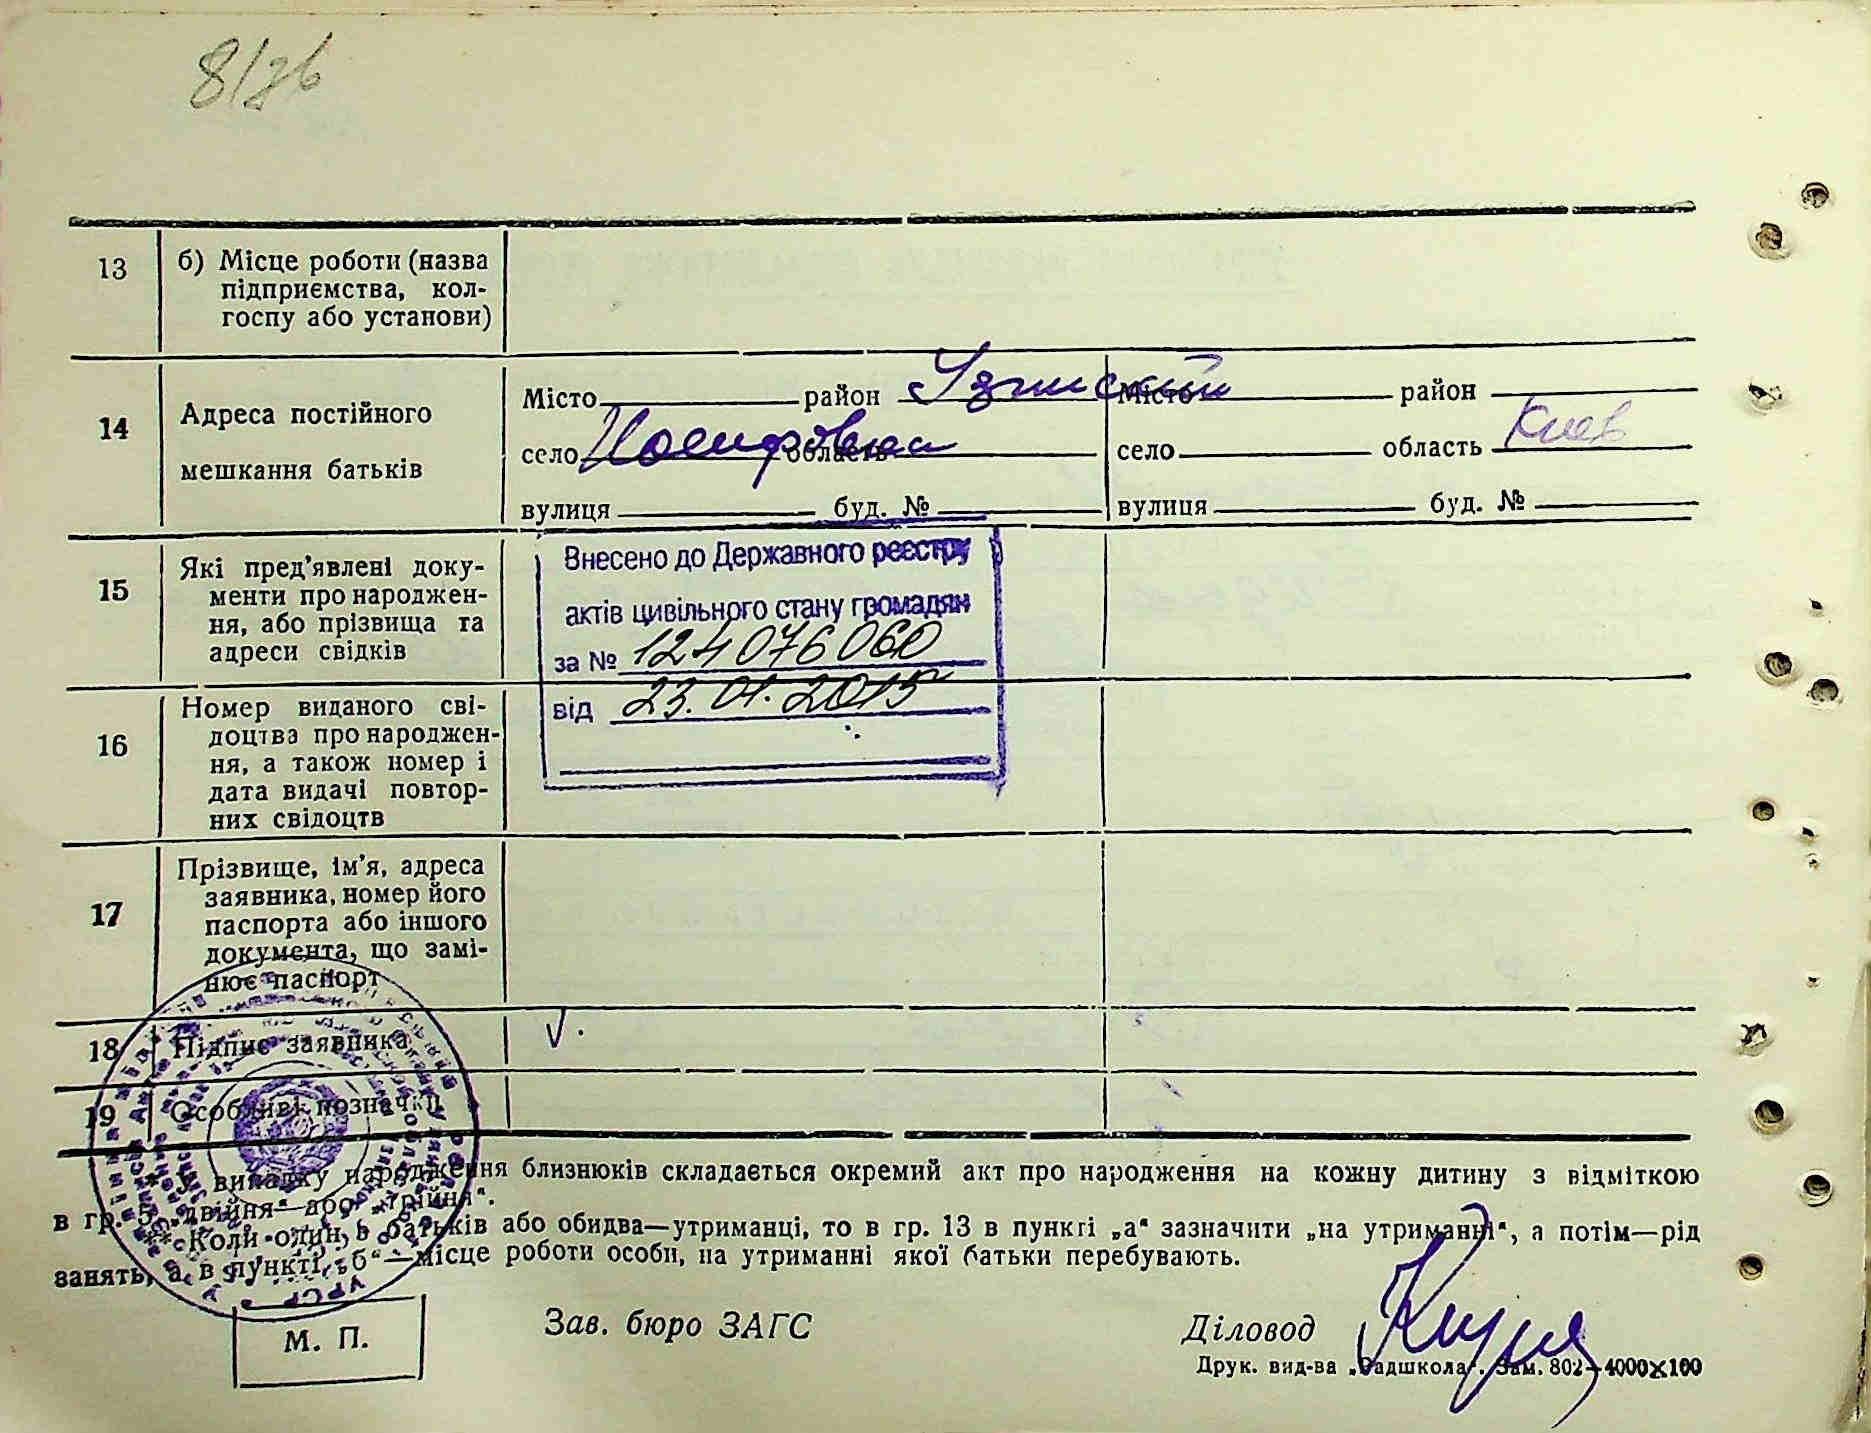 13 б) Місце роботи (назва
підприємства, кол-
госпу або установи)
14 Адреса постійного
мешкання батьків
Місто район Узинский
село Иосиповка область
вулиця буд. №
Місто район
село область Киев
вулиця буд. №
15 Які пред'явлені доку-
менти про народжен-
ня, або прізвища та
адреси свідків
Внесено до Державного реєстру
актів цивільного стану громадян
за № 124076060
від 23.01.2015
16 Номер виданого сві-
доцтва про народжен-
ня, а також номер і
дата видачі повтор-
них свідоцтв
17 Прізвище, ім'я, адреса
заявника, номер його
паспорта або іншого
документа, що замі-
нює паспорт
18 Підпис заявника V.
19 Особливі позначки
* У випадку народження близнюків складається окремий акт про народження на кожну дитину з відміткою
в гр. 5 „двійня“ або „трійня“.
** Коли один з батьків або обидва—утриманці, то в гр. 13 в пункті „а“ зазначити „на утриманні“, а потім—рід
занять, а в пункті „б“—місце роботи особи, на утриманні якої батьки перебувають.
М. П.
Зав. бюро ЗАГС
Діловод
Друк. вид-ва „Радшкола“. Зам. 802—4000×100